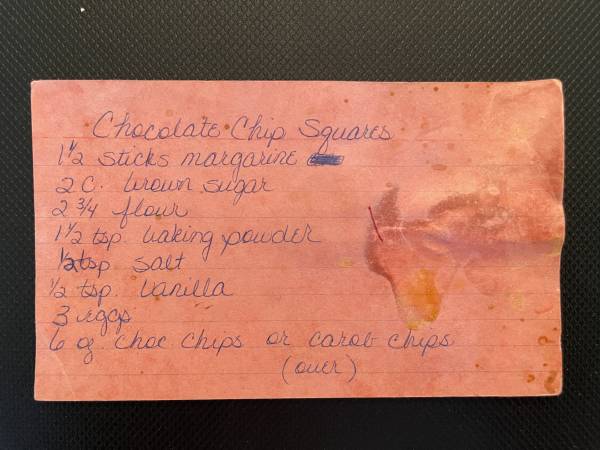 Chocolate Chip Squares
1 1/2 sticks margarine
2 C. brown sugar
2 3/4 flour
1 1/2 tsp. baking powder
1/2 tsp salt
1/2 tsp. vanilla
3 eggs
6 oz choc chips or carob chips
(over)